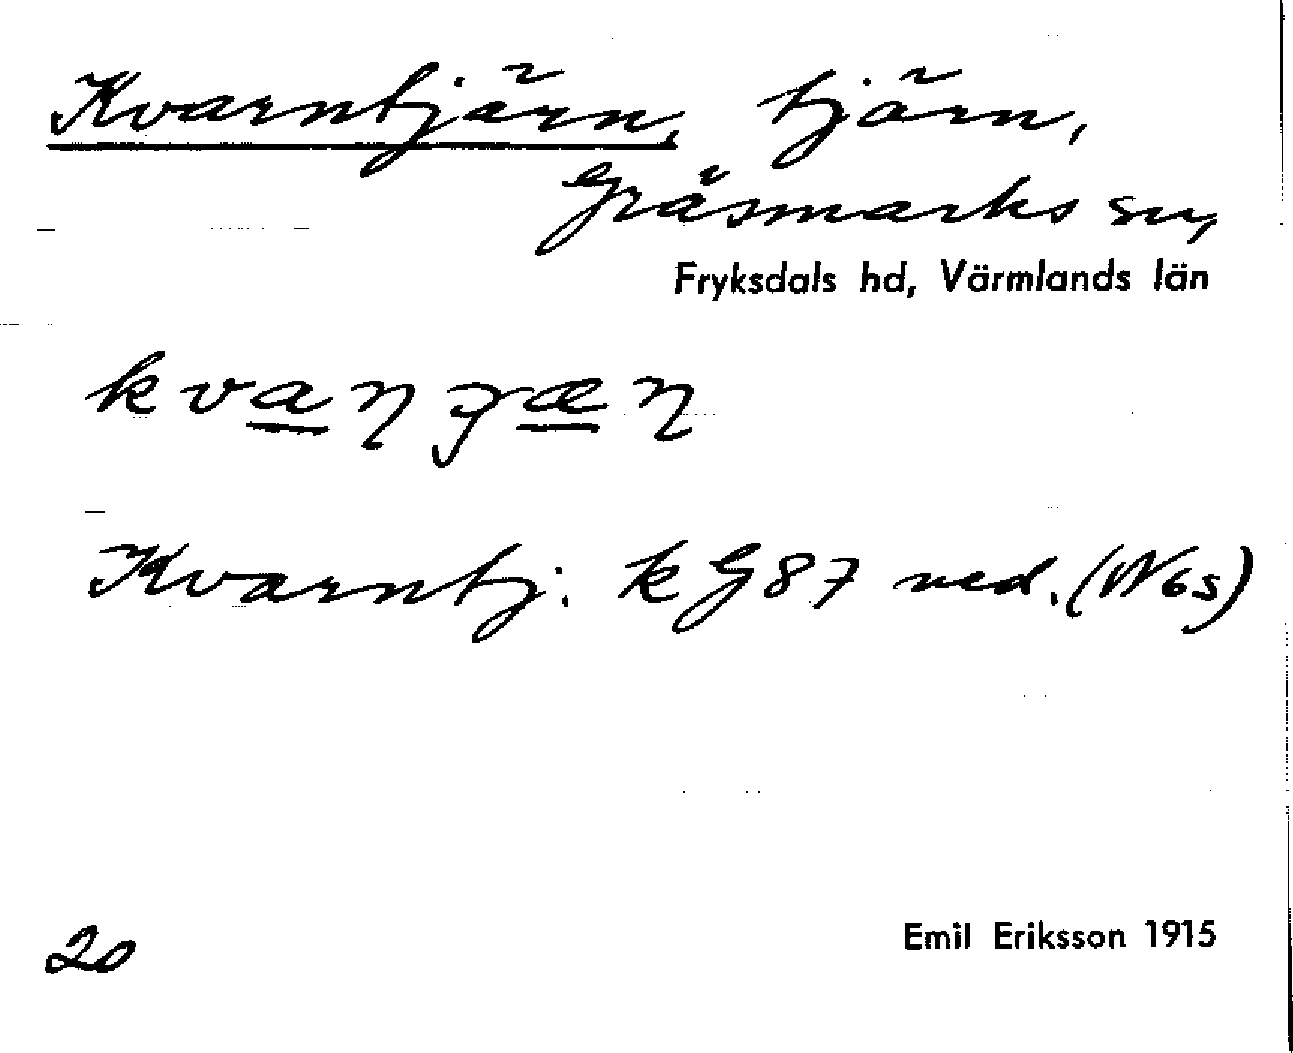 Kvarntjärn, tjärn,
Gräsmarks sn,
Fryksdals hd, Värmlands län
Kvarntj. k G 87 ned. (N6s)
20
Emil Eriksson 1915